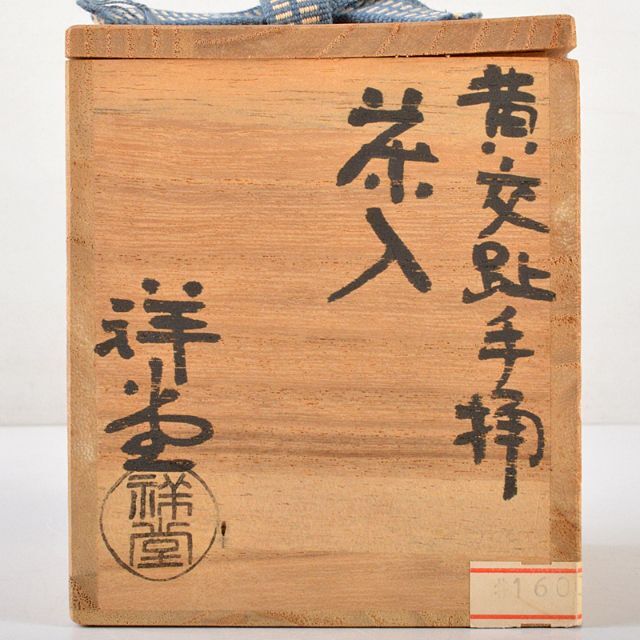 黄交趾手桶
茶入
祥堂
祥堂
#160